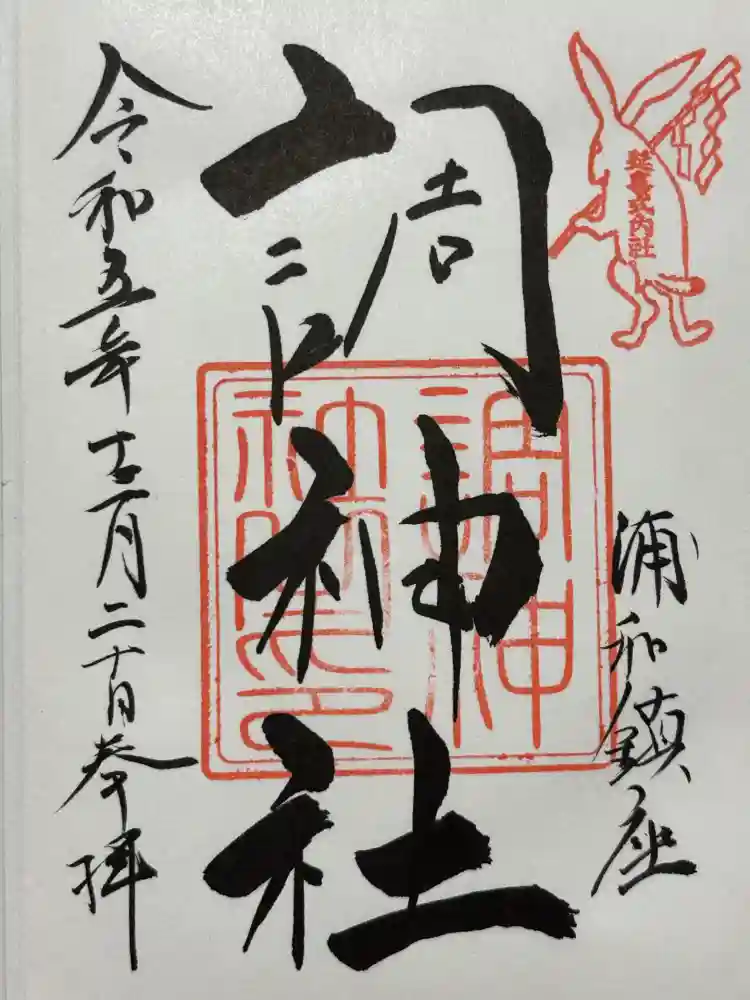 延喜式内社
浦和鎮座
調神社
調神社印
令和五年十二月二十日奉拝